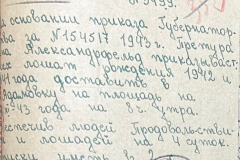 № 5499.
основании приказа Губернатор-
ва за № 154517 1943 г. Претура
на Александрфельд приказывает
их лошат рождения 1942 и
41 года доставить в
ндамовку на площадь на
43 года на 8 г. утра.
еспечив людей Продовольстви-
и лошадей на 4 суток.